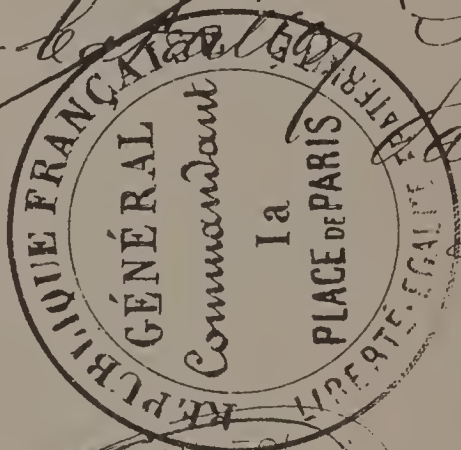 RÉPUBLIQUE FRANÇAISE
LIBERTÉ · EGALITÉ FRATERNITÉ
GÉNÉRAL
Commandant
la
PLACE DE PARIS